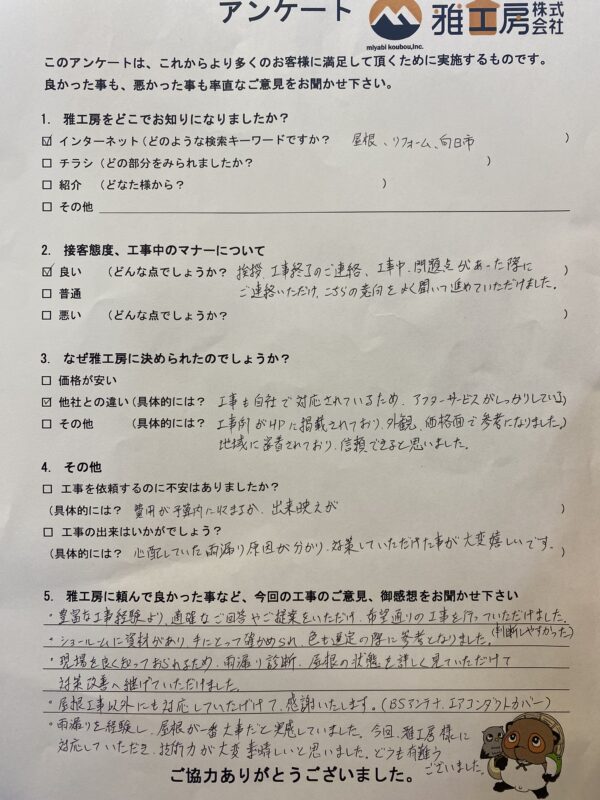 アンケート 雅工房 株式会社
miyabi koubou,inc.
このアンケートは、これからより多くのお客様に満足して頂くために実施するものです。
良かった事も、悪かった事も率直なご意見をお聞かせ下さい。
1. 雅工房をどこでお知りになりましたか？
☑ インターネット（どのような検索キーワードですか？ 屋根、リフォーム、向日市 ）
□ チラシ（どの部分をみられましたか？ ）
□ 紹介 （どなた様から？ ）
□ その他
2. 接客態度、工事中のマナーについて
☑ 良い （どんな点でしょうか？ 挨拶、工事終了のご連絡、工事中、問題点があった際に ）
□ 普通 ご連絡いただけ、こちらの意向をよく聞いて進めていただけました。
□ 悪い （どんな点でしょうか？ ）
3. なぜ雅工房に決められたのでしょうか？
□ 価格が安い
☑ 他社との違い（具体的には？ 工事も自社で対応されているため、アフターサービスがしっかりしている）
□ その他 （具体的には？ 工事例がHPに掲載されており、外観、価格面で参考になりました。）
地域に密着されており、信頼できると思いました。
4. その他
□ 工事を依頼するのに不安はありましたか？
（具体的には？ 費用が予算内に収まるか、出来映えが ）
□ 工事の出来はいかがでしょう？
（具体的には？ 心配していた雨漏り原因が分かり、対策していただけた事が大変嬉しいです。 ）
5. 雅工房に頼んで良かった事など、今回の工事のご意見、御感想をお聞かせ下さい
・豊富な工事経験より、適確なご回答やご提案をいただけ、希望通りの工事を行っていただけました。
・ショールームに資材があり、手にとって確かめられ、色も選定の際に参考となりました。（判断しやすかった）
・現場を良く知っておられるため、雨漏り診断、屋根の状態を詳しく見ていただけて
対策改善へ継げていただけました。
・屋根工事以外にも対応していただけて、感謝いたします。（BSアンテナ、エアコンダクトカバー）
・雨漏りを経験し、屋根が一番大事だと実感していました。今回、雅工房様に
対応していただき、技術力が大変素晴しいと思いました。どうも有難う
ございました。
ご協力ありがとうございました。